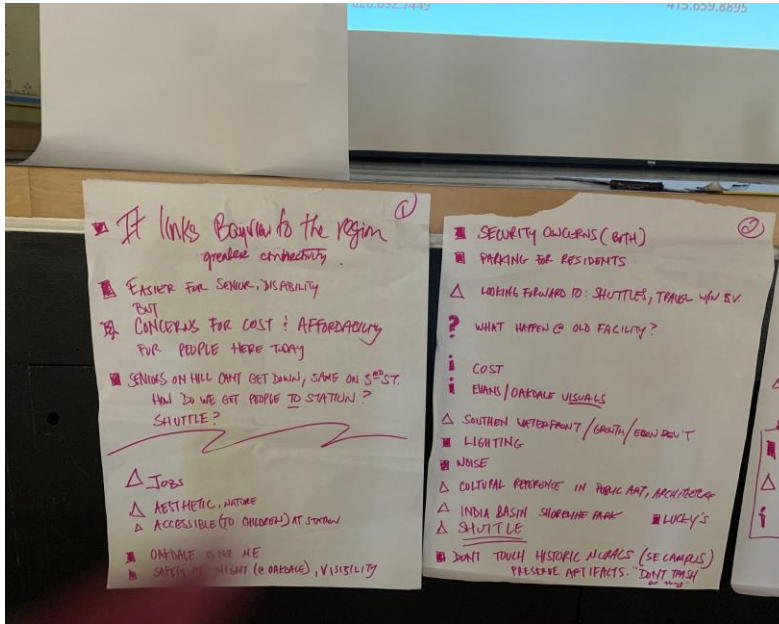 628.652.7449
415.659.8895
1
It links Bayview to the region
greater connectivity
EASIER FOR SENIOR, DISABILITY
BUT
CONCERNS FOR COST & AFFORDABILITY
FOR PEOPLE HERE TODAY
SENIORS ON HILL CANT GET DOWN, SAME ON 3RD ST.
HOW DO WE GET PEOPLE TO STATION?
SHUTTLE?
△ JOBS
△ AESTHETIC, NATURE
△ ACCESSIBLE (TO CHILDREN) AT STATION
OAKDALE ME
SAFETY NIGHT (@ OAKDALE), VISIBILITY
2
SECURITY CONCERNS (BOTH)
PARKING FOR RESIDENTS
△ LOOKING FORWARD TO: SHUTTLES, TRAVEL W/N BV.
? WHAT HAPPEN @ OLD FACILITY?
i COST
i EVANS/OAKDALE VISUALS
△ SOUTHEN WATERFRONT/GROWTH/ECON DEV'T
LIGHTING
NOISE
△ CULTURAL REFERENCE IN PUBLIC ART, ARCHITECTURE
△ INDIA BASIN SHORELINE PARK LUCKY'S
△ SHUTTLE
DONT TOUCH HISTORIC MURALS (SE CAMPUS)
PRESERVE ARTIFACTS. "DONT TRASH
△
△
i